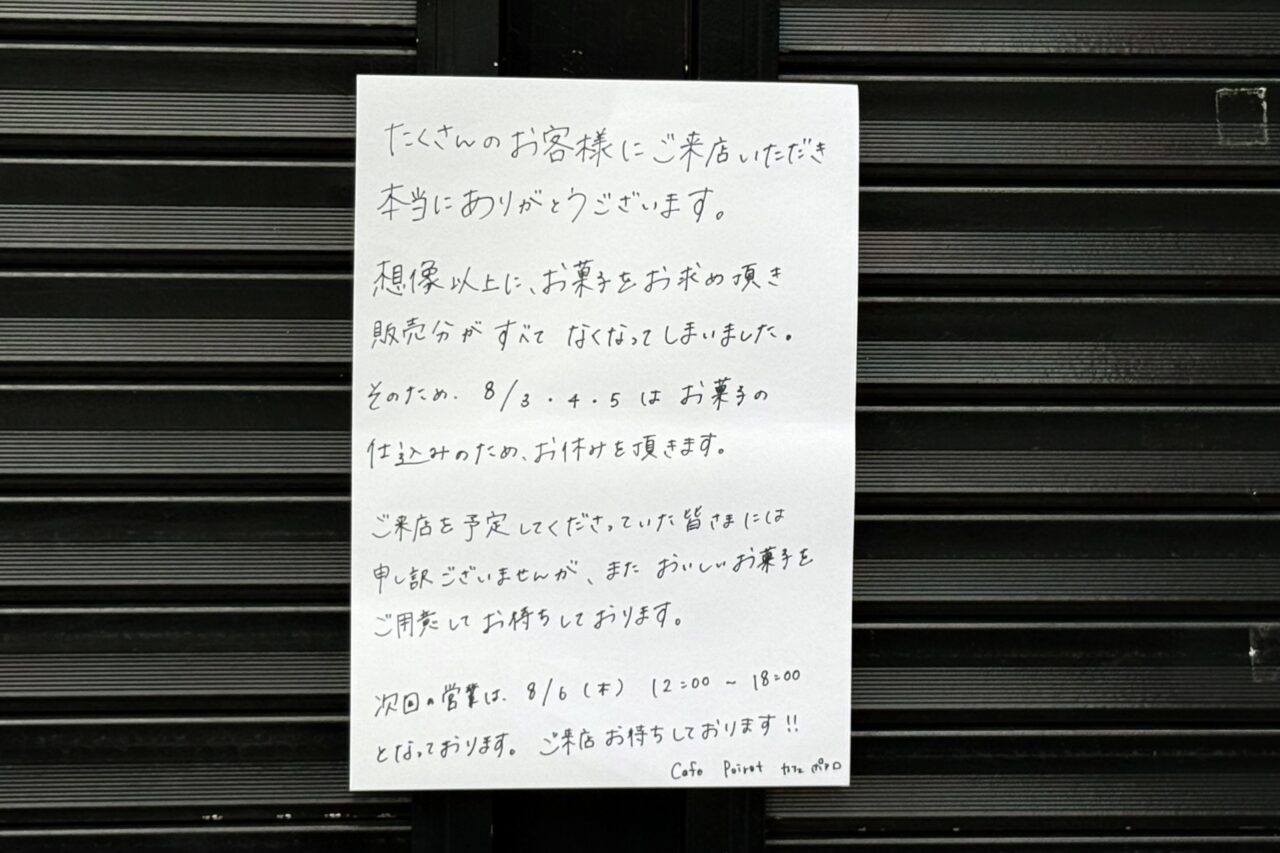 たくさんのお客様にご来店いただき
本当にありがとうございます。
想像以上に、お菓子をお求め頂き
販売分がすべてなくなってしまいました。
そのため、8/3・4・5はお菓子の
仕込みのため、お休みを頂きます。
ご来店を予定してくださっていた皆さまには
申し訳ございませんが、またおいしいお菓子を
ご用意してお待ちしております。
次回の営業は、8/6(木) 12:00~18:00
となっております。ご来店お待ちしております!!
Cafe Poirot カフェ ポアロ